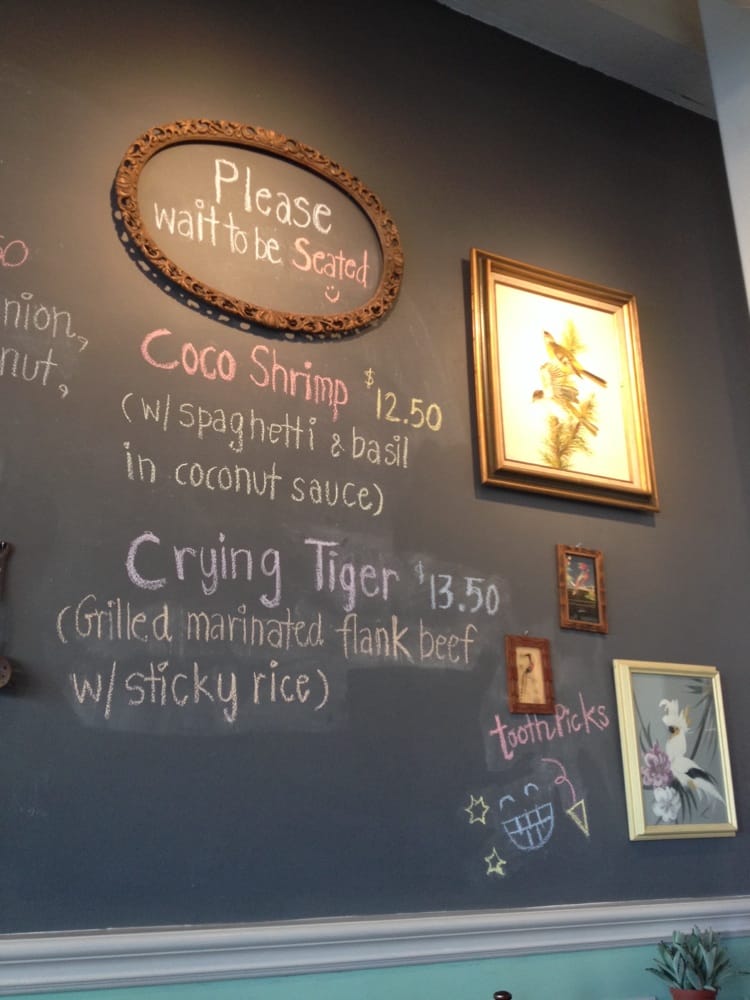 Please
wait to be Seated
Coco Shrimp $12.50
(w/spaghetti & basil
in coconut sauce)
Crying Tiger $13.50
(Grilled marinated flank beef
w/sticky rice)
toothPicks